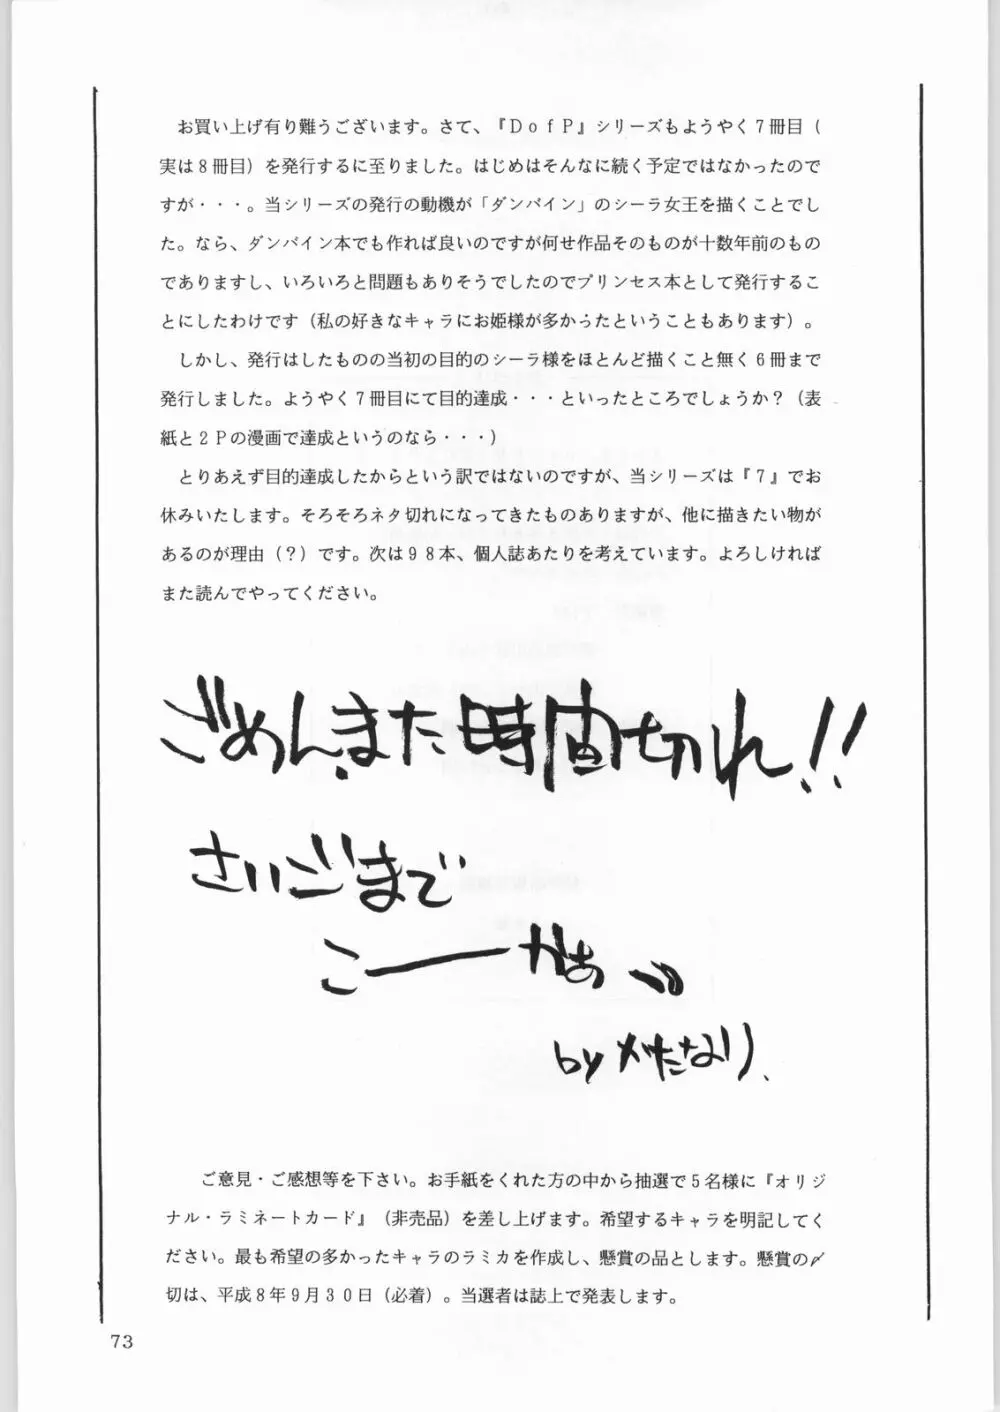 お買い上げ有り難うございます。さて、『ＤｏｆＰ』シリーズもようやく７冊目（
実は８冊目）を発行するに至りました。はじめはそんなに続く予定ではなかったので
すが・・・。当シリーズの発行の動機が「ダンバイン」のシーラ女王を描くことでし
た。なら、ダンバイン本でも作れば良いのですが何せ作品そのものが十数年前のもの
でありますし、いろいろと問題もありそうでしたのでプリンセス本として発行するこ
とにしたわけです（私の好きなキャラにお姫様が多かったということもあります）。
しかし、発行はしたものの当初の目的のシーラ様をほとんど描くこと無く６冊まで
発行しました。ようやく７冊目にて目的達成・・・といったところでしょうか？（表
紙と２Ｐの漫画で達成というのなら・・・）
とりあえず目的達成したからという訳ではないのですが、当シリーズは『７』でお
休みいたします。そろそろネタ切れになってきたものありますが、他に描きたい物が
あるのが理由（？）です。次は９８本、個人誌あたりを考えています。よろしければ
また読んでやってください。
ごめん、また時間切れ！！
さいごまで
こーかぁ
by かたなり、
ご意見・ご感想等を下さい。お手紙をくれた方の中から抽選で５名様に『オリジ
ナル・ラミネートカード』（非売品）を差し上げます。希望するキャラを明記してく
ださい。最も希望の多かったキャラのラミカを作成し、懸賞の品とします。懸賞の〆
切は、平成８年９月３０日（必着）。当選者は誌上で発表します。
73